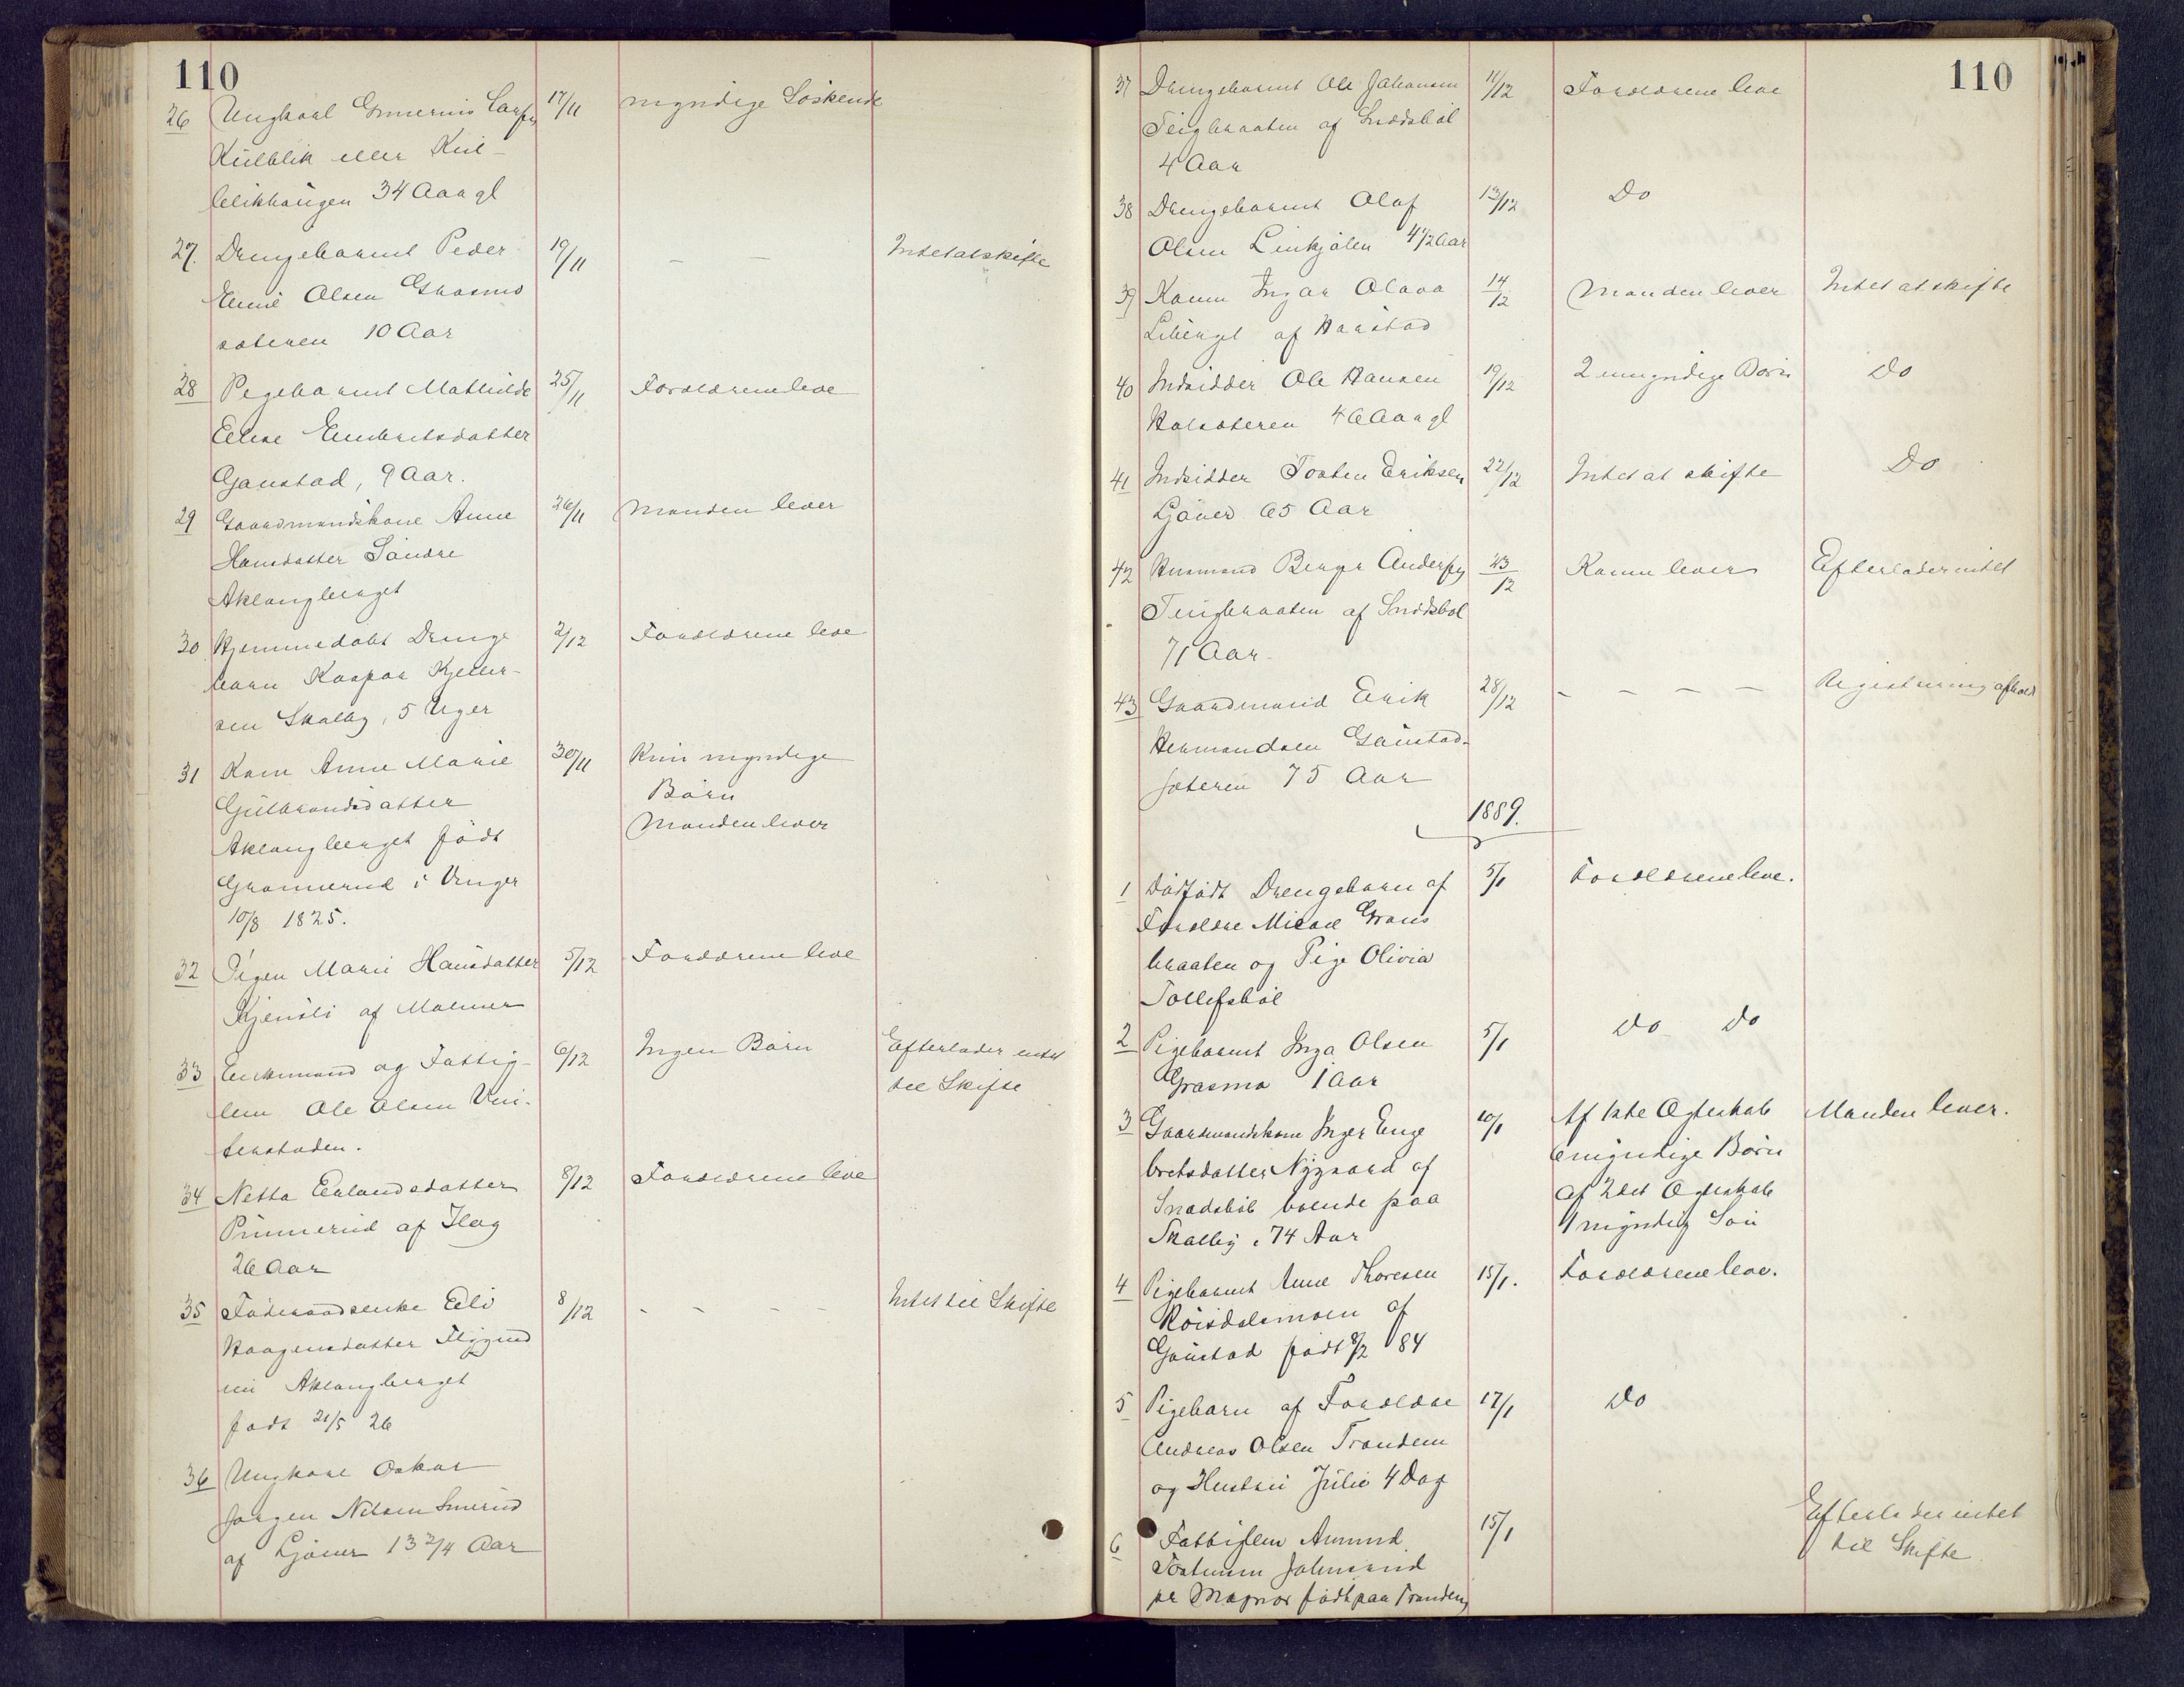 110
26 Ungkarl Gunerius Larss 17/11 myndige Söskende
Kulblik eller Kul-
blikhaugen 34 Aar gl
27. Drengebarnet Peder 19/11 – – Intet at skifte
Emil Olsen Grasmo
sæteren 10 Aar
28 Pegebarnet Mathilde 25/11 Forældrene leve
Eline Embretsdatter
Gaustad, 9 Aar.
29 Gaardmandskone Anne 26/11 Manden lever
Hansdatter Söndre
Aklangberget
30 Hjemmedöbt Drenge 2/12 Forældrene leve
barn Kaspar Kjeller-
sen Skalby, 5 Uger
31 Kone Anne Marie 30/11 Kun myndige
Gulbrandsdatter Börn
Aklangberget födt Manden lever
Grannerud i Vinger
10/8 1825.
32 Pigen Marie Hansdatter 5/12 Forældrene leve
Kjensli af Malmer
33 Enkemand og Fattig- 6/12 Ingen Börn Efterlader intet
lem Ole Olsen Vin- til Skifte
terstuden.
34 Netta Erlandsdatter 8/12 Forældrene leve
Pinnerud af Ilag
26 Aar
35 Föderaadsenke Eli 8/12 - - - - Intet til Skifte
Haagensdatter Flygind
ini Aklangberget
födt 21/5 26
36 Ungkarl Oskar
Jörgen Nilsen Smerud
af Gjöver 13 3/4 Aar
110
37 Drengebarnet Ole Johansen 11/12 Forældrene leve
Teigbraaten af Snødsböl
4 Aar
38 Drengebarnet Olaf 13/12 Do
Olsen Linkjölen 4 1/2 Aar
39 Kone Ingar Olava 14/12 Manden lever Intet at skifte
Liberget af Haastad
40 Indsidder Ole Hansen 19/12 2 umyndige Börn Do
Halsæteren 46 Aar gl
41 Indsidder Tosten Eriksen 22/12 Intet at skifte Do
Gjöver 65 Aar
42 Husmand Birger Anderss 23/12 Konen lever Efterlader intet
Teigbraaten af Snødsböl
71 Aar
43 Gaardmand Erik 28/12 - - - - Registrering afhold
Hermandsen Gaustad-
sæteren 75 Aar
1889.
1 Dödfödt Drengebarn af 5/1 Forældrene leve.
Forældre Mikael Grans
braaten og Pige Olivia
Tollefsböl
2 Pigebarnet Inga Olsen 5/1 Do Do
Grasmo 1 Aar
3 Gaardmandskone Inger Enge 10/1 Af 1ste Ægteskab Manden lever.
bretsdatter Nygaard af 6 myndige Börn
Snødsböl boende paa af 2det Ægteskab
Skalby, 74 Aar 1 myndig Sön
4 Pigebarnet Anne Thoresen 15/1. Forældrene leve.
Röisdalsmoen af
Gaustad födt 8/2 84
5 Pigebarn af Forældre 17/1 Do
Andreas Olsen Trandem
og Hustru Julie 4 Dag
6 Fattiglem Amund 15/1 Efterlader intet
Tostensen Johnsrud til Skifte
pr Magnor födt paa Trandem